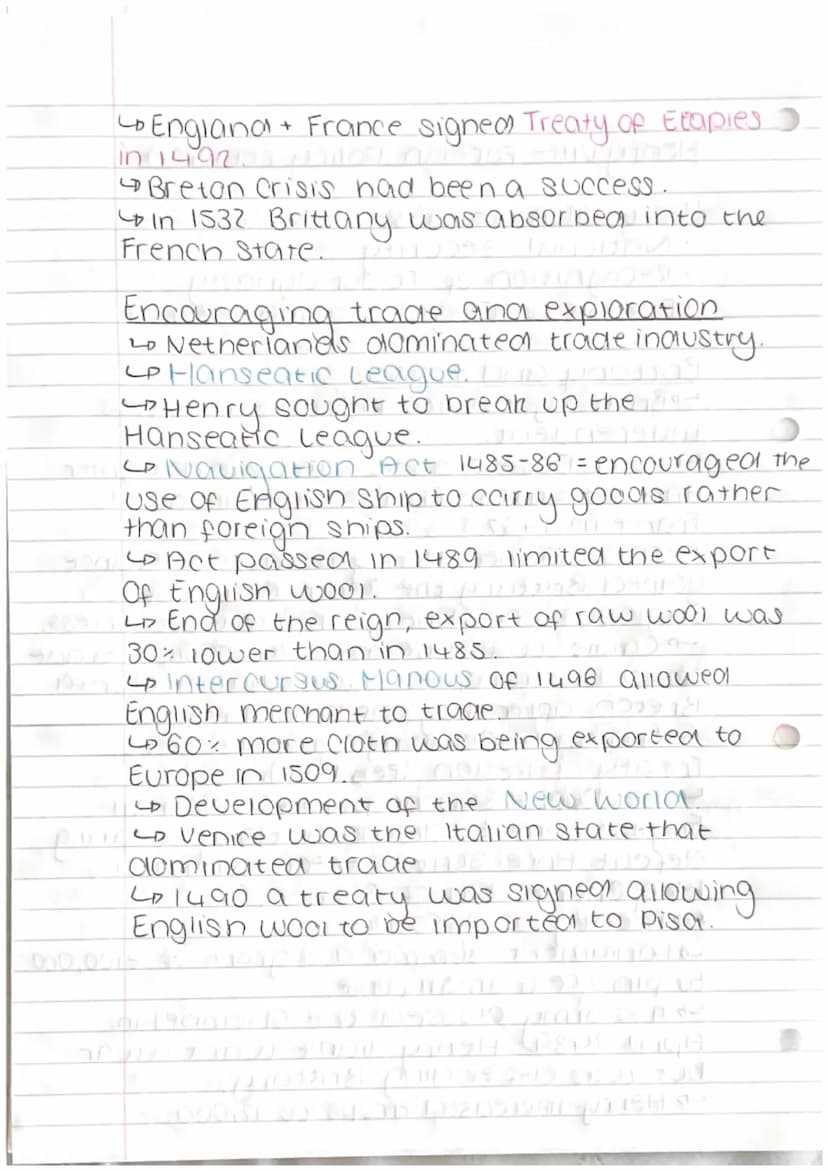 ↳ England + France signed Treaty of Etaples
in 1492.
↳ Breton Crisis had been a success.
↳ In 1532 Brittany was absorbed into the
French State.
Encouraging trade and exploration
↳ Netherlands dominated trade industry.
↳ Hanseatic League.
↳ Henry sought to break up the
Hanseatic League.
↳ Navigation Act 1485-86 = encouraged the
use of English ship to carry goods rather
than foreign ships.
↳ Act passed in 1489 limited the export
Of English wool.
↳ End of the reign, export of raw wool was
30% lower than in 1485.
↳ Intercursus Manous of 1496 allowed
English merchant to trade.
↳ 60% more cloth was being exported to
Europe in 1509.
↳ Development of the New World
↳ Venice was the Italian state that
dominated trade
↳ 1490 a treaty was signed allowing
English wool to be imported to Pisa.